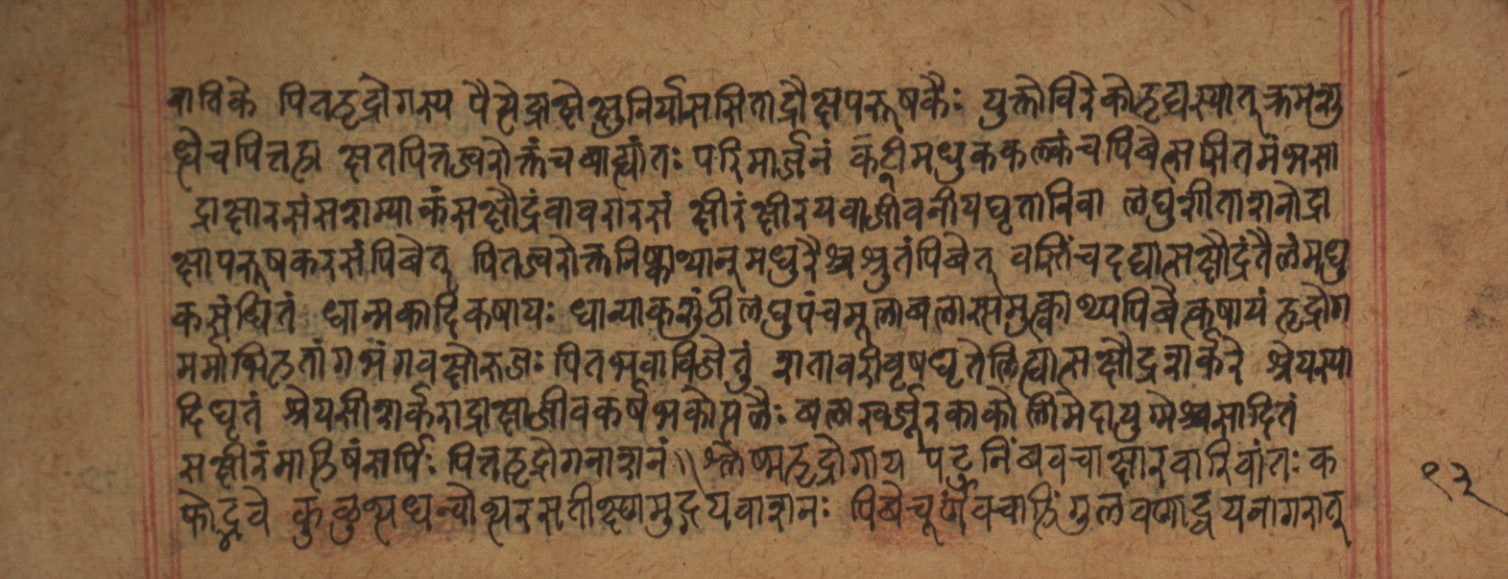 वातिके पित्तहृद्रोगस्य पैत्ते द्राक्षेक्षुनिर्याससिताद्रौक्षपरूषकैः युक्तो विरेको हृद्यस्यात् क्रमशु
द्धे च पित्तहा क्षतपित्तज्वरोक्तं च बाह्यांतः परिमार्जनं कट्वीमधुककल्कं च पिबेत्ससितमंभसा
द्राक्षारसं सक्षौद्रं वा वरारसं क्षीरं क्षीरयवाजीवनीयघृतानि वा लघुशीताशनो द्रा
क्षापरूषकरसं पिबेत् पितज्वरोक्तनिष्क्वाथ्यान् मधुरैश्च श्रुतं पिबेत् वस्तिं च दद्यात्सक्षौद्रं तैलं मधु
कसंधितं धान्यकादिकषायः धान्याकशुंठीलघुपंचमूलाबलासमुत्क्वाथ्य पिबेत्कषायं हृद्रोग
मर्माभिहतांगभंगवक्षोरुजः पितभवा विजेतुं शतावरीवृषघृते लिह्यात्सक्षौद्रशर्करे श्रेयस्या
दिघृतं श्रेयसीशर्कराद्राक्षाजीवकर्षभकोत्पलैः बलाखर्जूरकाकोलीमेदायुग्मैश्च सादितं
सक्षीरं माहिषं सर्पिः पित्तहृद्रोगनाशनं ॥ श्लेष्महृद्रोगाय पटुनिंबवचाक्षारवारिवांतः क
फोद्भवे कुलुत्थधन्वोत्थरसतीक्ष्णमुद्गयवाशनः पिबेच्चूर्णं वचाहिंगुलवणद्वयनागरात्
९२